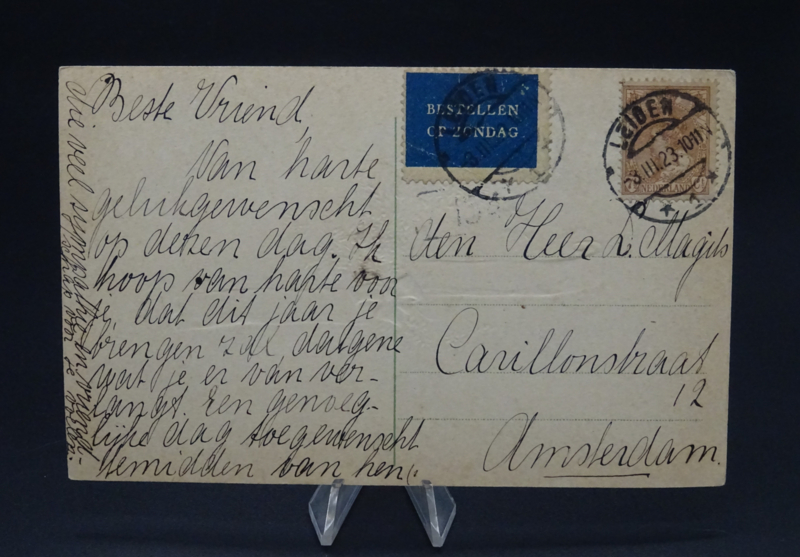 Beste Vriend,
Van harte
gelukgewenscht
op dezen dag. Ik
hoop van harte voor
je, dat dit jaar je
brengen zal datgene
wat je er van ver-
langt. Een genoeg-
lijke dag toegewenscht
temidden van hen,
die veel sympathie en vriend-
BESTELLEN
OP ZONDAG.
LEIDEN
LEIDEN
3 III 23. 10-11 V
NEDERLAND
den Heer D. Magits
Carillonstraat
12
Amsterdam.